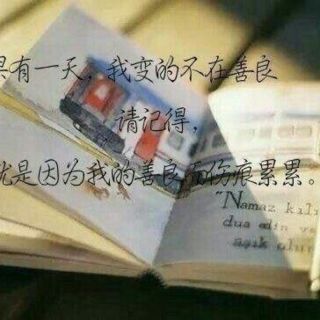 果有一天，我变的不在善良
请记得，
就是因为我的善良而伤痕累累。
"Namaz kılı
dua edin ve
aşık olun